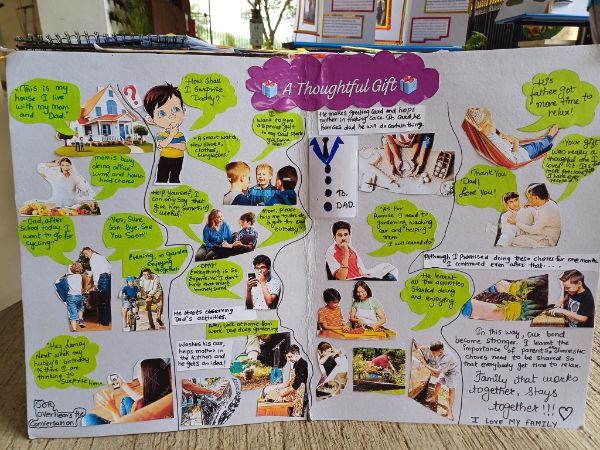 A Thoughtful Gift
"This is my
house I live
with my mom
and Dad."
?
How Shall
I Surprise
Today?
I
want to give
a special gift
to my Dad
A Smart watch,
new shoes,
clothes,
sunglasses.
Mom is busy
doing office
work and house
hold chores
Dad, after
School today I
want to go for
cycling
Yeh, Sure
Son. Bye. See
You Soon!
Help Yourself. I
can only Say that
give him Something
useful!
Mom, please
help
Evening, in Garden
Enjoying
together
OMG!
Everything is So
Expensive. I don't
have that much
money
He starts observing
Dad's activities.
Mom, back at home from
work Dad does gardening
Washes his car,
helps mother in
the kitchen and
he gets an idea!
"Hey dammy
Next week my
hubby's birthday
is there I am
thinking to
Surprise him
Son
Overhears the
Conversation!
He makes greeting card and helps
mother in making cake. In card he
promises dad he will do certain things.
TO.
DAD.
"As per
Promise I need to
gardening, washing
car and helping
mom.
I will sure do
He learnt
all the activities
Started doing
and enjoying.
His
Father got
more time to
relax!
Thank You
Dad!
Love you!
Your gift
was really a
thoughtful one I
loved it. It's the
most precious
Although I Promised doing these chores for one month
I continued even after that....
In this way, Our bond
become stronger. I learnt the
importance of parents, domestic
chores need to be Shared So
that everybody get time to relax.
Family that works
together, Stays
together!!!
I LOVE MY FAMILY